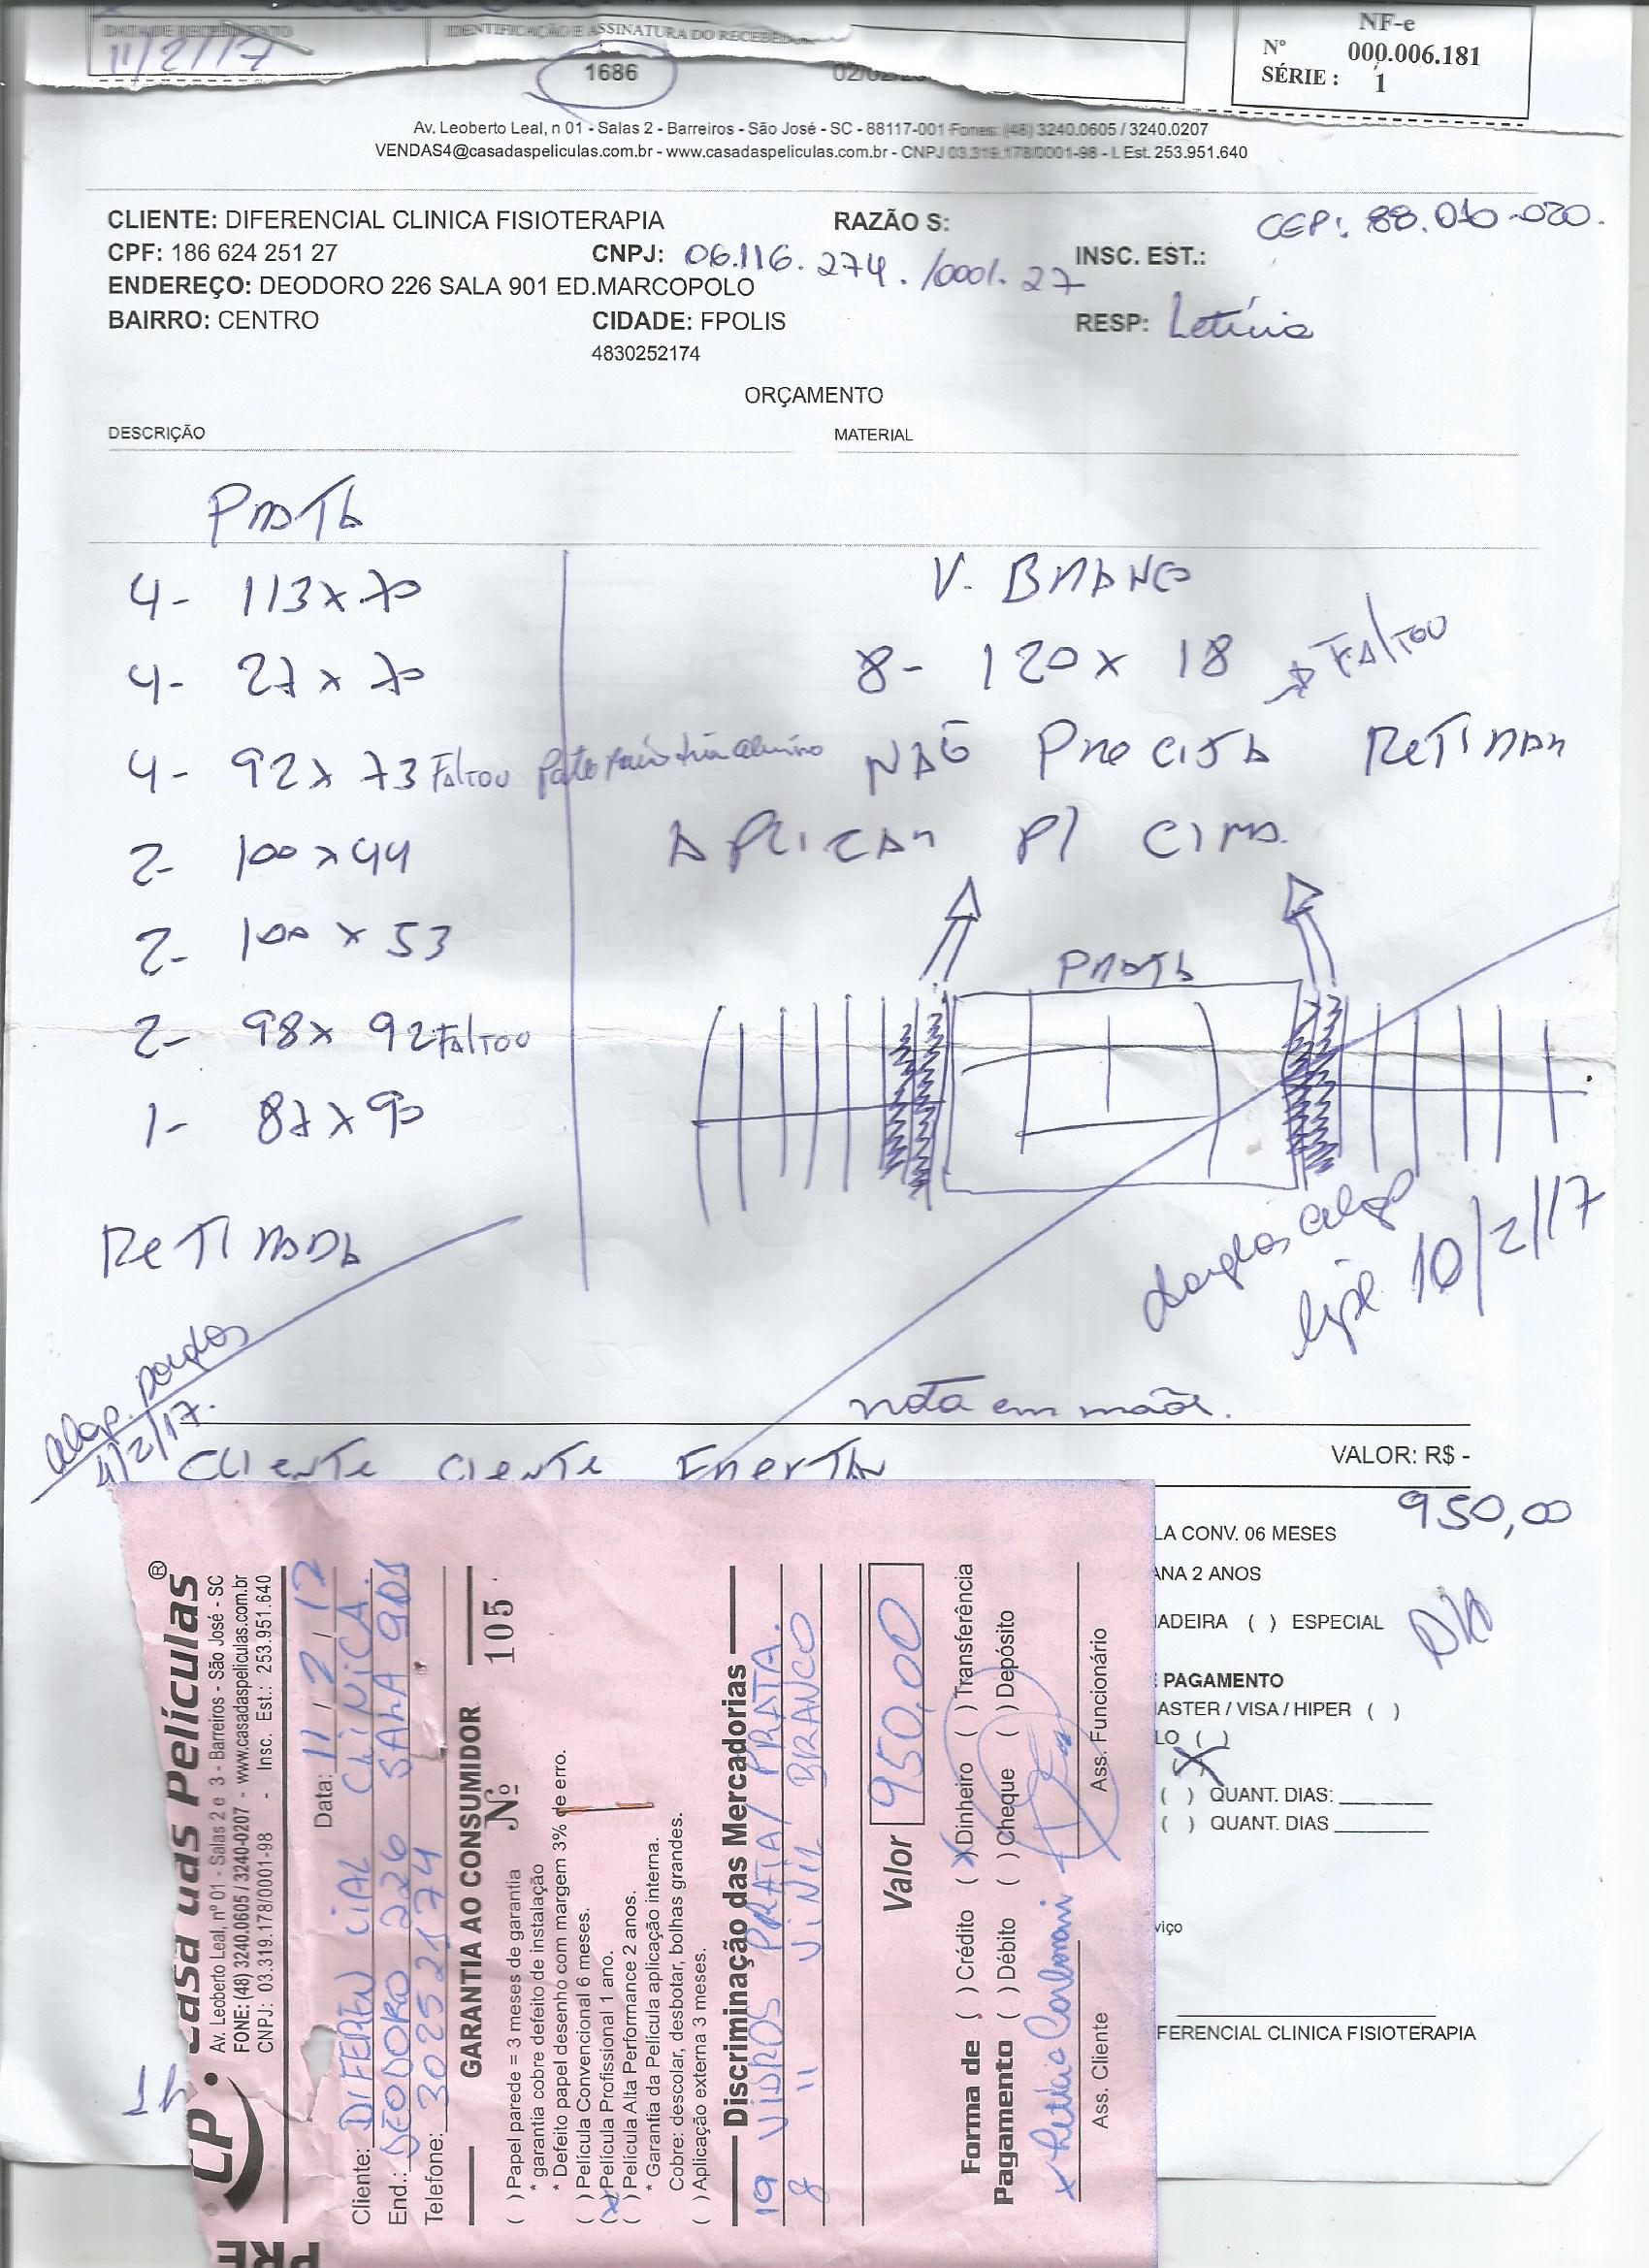 DATA DE RECEBIMENTO
IDENTIFICAÇÃO E ASSINATURA DO RECEBEDOR
11/2/17
1686
NF-e
Nº 000.006.181
SÉRIE : 1
Av. Leoberto Leal, n 01 - Salas 2 - Barreiros - São José - SC - 88117-001 Fones: (48) 3240.0605 / 3240.0207
VENDAS4@casadaspeliculas.com.br - www.casadaspeliculas.com.br - CNPJ 03.319.178/0001-98 - I. Est. 253.951.640
CEP: 88.010-020.
CLIENTE: DIFERENCIAL CLINICA FISIOTERAPIA RAZÃO S:
CPF: 186 624 251 27 CNPJ: 06.116.274./0001.27 INSC. EST.:
ENDEREÇO: DEODORO 226 SALA 901 ED.MARCOPOLO
BAIRRO: CENTRO CIDADE: FPOLIS RESP: Letícia
4830252174
ORÇAMENTO
DESCRIÇÃO MATERIAL
PRATA
4- 113x70
4- 27x70
4- 92x73 FALTOU
2- 100x44
2- 100x53
2- 98x92 FALTOU
1- 87x90
RETIRADA
V. BRANCO
8- 120x18 → FALTOU
NÃO PRECISA RETIRAR
APLICAR P/ CIMA.
PRATA
10/2/17
4/2/17.
nota em mãos.
CLIENTE CIENTE
VALOR: R$ -
950,00
LA CONV. 06 MESES
ANA 2 ANOS
ADEIRA ( ) ESPECIAL
PAGAMENTO
ASTER / VISA / HIPER ( )
LO ( )
( ) QUANT. DIAS:
( ) QUANT. DIAS
viço
FERENCIAL CLINICA FISIOTERAPIA
CP. Casa das Películas®
Av. Leoberto Leal, nº 01 - Salas 2 e 3 - Barreiros - São José - SC
FONE: (48) 3240.0605 / 3240-0207 - www.casadaspeliculas.com.br
CNPJ: 03.319.178/0001-98 - Insc. Est.: 253.951.640
Data: 11/2/17
Cliente: DIFEREN CIAL CLINICA.
End.: DEODORO 226 SALA 901
Telefone: 30252174
GARANTIA AO CONSUMIDOR Nº 105
( ) Papel parede = 3 meses de garantia
* garantia cobre defeito de instalação
* Defeito papel desenho com margem 3% de erro.
( ) Película Convencional 6 meses.
(x) Película Profissional 1 ano.
( ) Película Alta Performance 2 anos.
* Garantia da Película aplicação interna.
Cobre: descolar, desbotar, bolhas grandes.
( ) Aplicação externa 3 meses.
Discriminação das Mercadorias
19 VIDROS PRATA/ PRATA.
8 " VINIL BRANCO
Valor 950,00
Forma de Pagamento
( ) Crédito (x) Dinheiro ( ) Transferência
( ) Débito ( ) Cheque ( ) Depósito
Ass. Cliente Ass. Funcionário